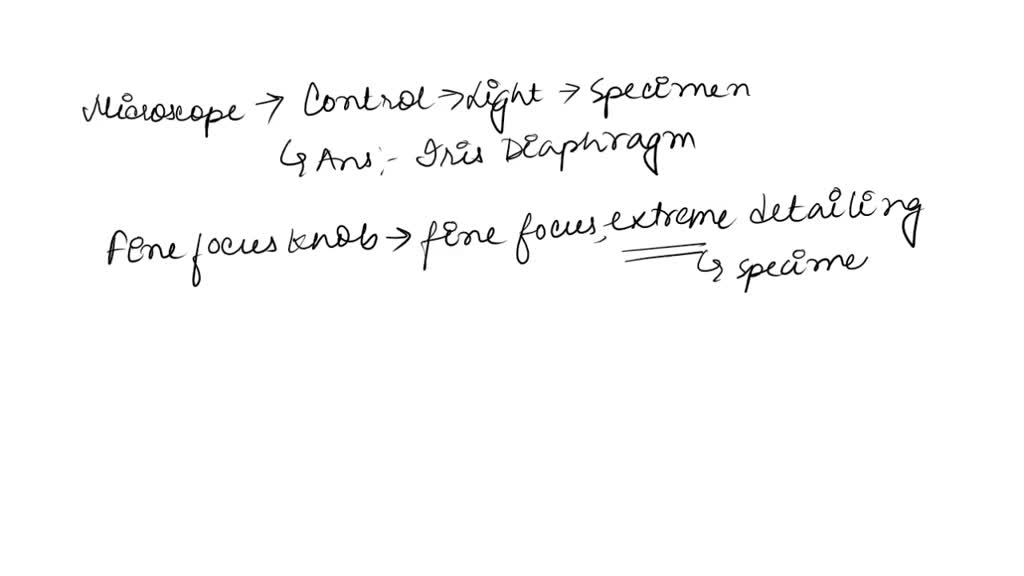 Microscope → Control → Light → Specimen
↳ Ans :- Iris Diaphragm
fine focus knob → fine focus, extreme detailing
↳ specime